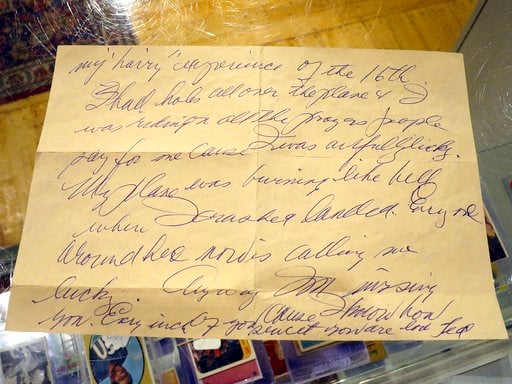 my "hairy" experience of the 16th.
I had holes all over the plane & I
was riding on all the prayers people
say for me cause I was awful lucky.
My plane was burning like hell
when I crashed landed. Every one
around hea now is calling me
lucky. Anyway I'm missing
you. Evry inch of you cause I know how
sweet you are